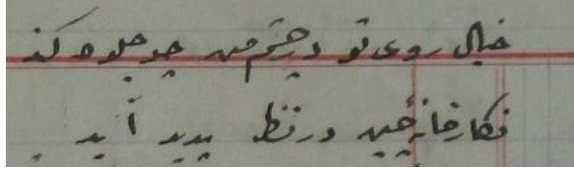 خیال روی تو در چشم من چو جلوه کند
نگارخانهٔ چین در نظر پدید آید